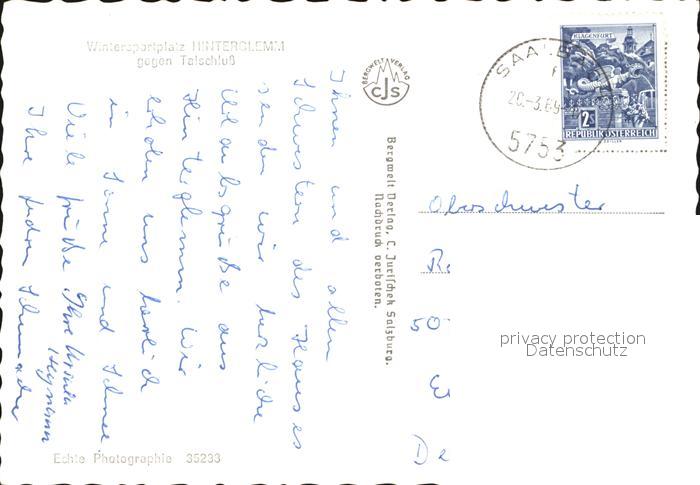 Wintersportplatz HINTERGLEMM
gegen Talschluß
BERGWELT VERLAG
CJS
SAALBACH
20.-3.69
5753
KLAGENFURT
2S
REPUBLIK ÖSTERREICH
Ihnen und allen
Schwestern des Hauses
senden wir herzliche
Urlaubsgrüße aus
Hinterglemm. Wir
erholen uns herrlich
in Sonne und Schnee.
Viele Grüße Ihre Ursula
Ihre
Bergwelt Verlag, C. Jurischek Salzburg.
Nachdruck verboten.
Oberschwester
R
50
W
De
privacy protection
Datenschutz
Echte Photographie 35233